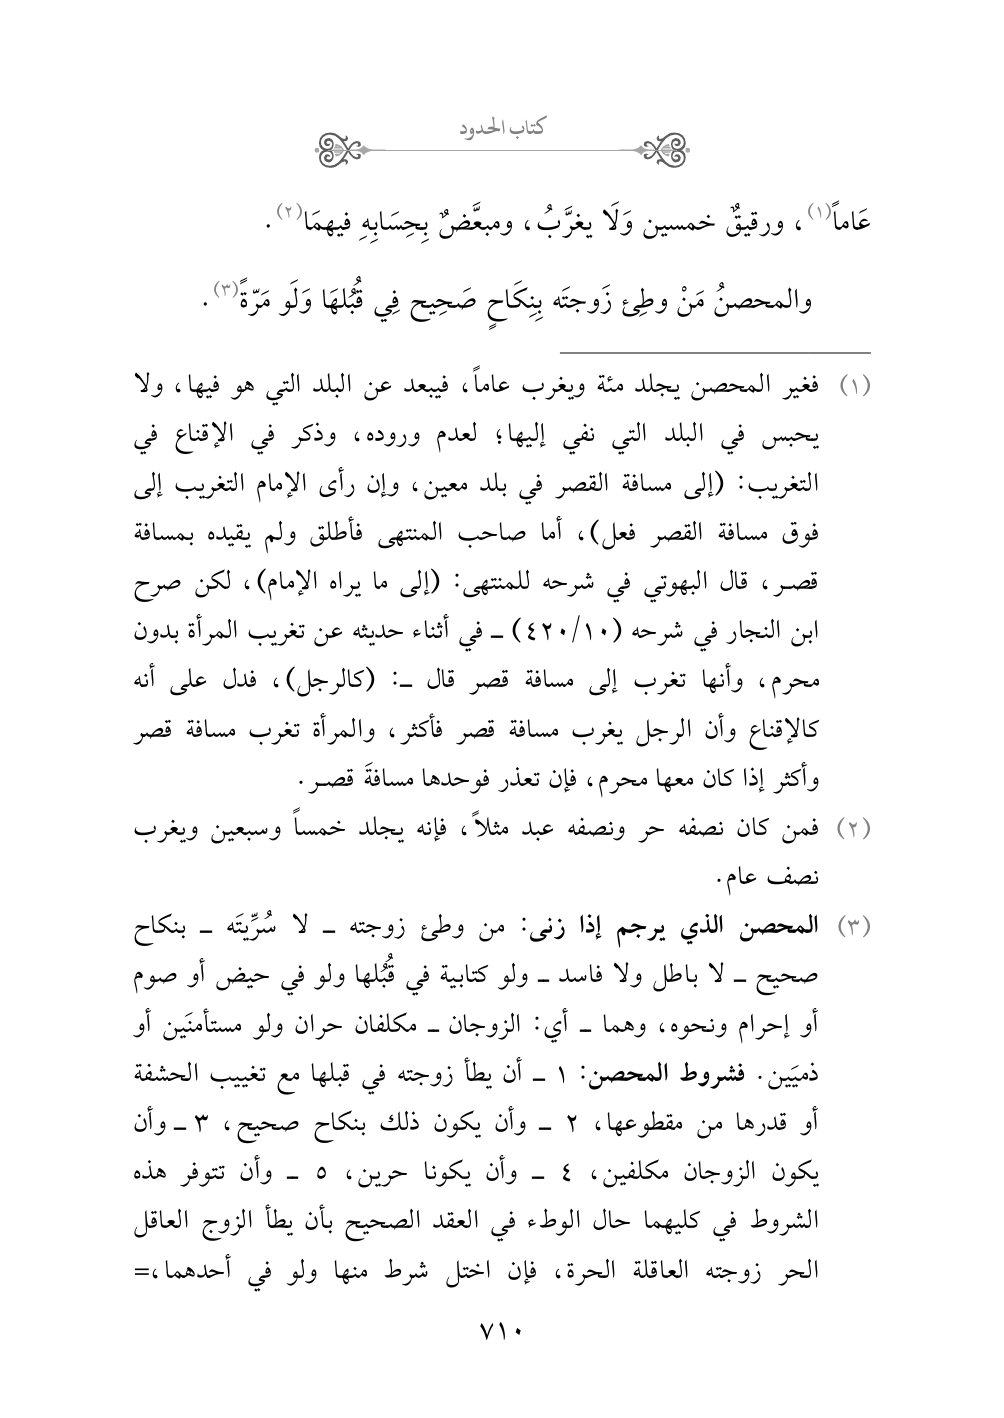 كتاب الحدود
عَاماً(١)، ورقيقٌ خمسين وَلَا يغرَّبُ، ومبعَّضٌ بِحِسَابِهِ فيهمَا(٢).
والمحصنُ مَنْ وطِئ زَوجتَه بِنِكَاحٍ صَحِيح فِي قُبُلهَا وَلَو مَرّةً(٣).
(١) فغير المحصن يجلد مئة ويغرب عاماً، فيبعد عن البلد التي هو فيها، ولا
يحبس في البلد التي نفي إليها؛ لعدم وروده، وذكر في الإقناع في
التغريب: (إلى مسافة القصر في بلد معين، وإن رأى الإمام التغريب إلى
فوق مسافة القصر فعل)، أما صاحب المنتهى فأطلق ولم يقيده بمسافة
قصر، قال البهوتي في شرحه للمنتهى: (إلى ما يراه الإمام)، لكن صرح
ابن النجار في شرحه (٤٢٠/١٠) ــ في أثناء حديثه عن تغريب المرأة بدون
محرم، وأنها تغرب إلى مسافة قصر قال ــ: (كالرجل)، فدل على أنه
كالإقناع وأن الرجل يغرب مسافة قصر فأكثر، والمرأة تغرب مسافة قصر
وأكثر إذا كان معها محرم، فإن تعذر فوحدها مسافةَ قصر.
(٢) فمن كان نصفه حر ونصفه عبد مثلاً، فإنه يجلد خمساً وسبعين ويغرب
نصف عام.
(٣) المحصن الذي يرجم إذا زنى: من وطئ زوجته ــ لا سُرِّيتَه ــ بنكاح
صحيح ــ لا باطل ولا فاسد ــ ولو كتابية في قُبُلها ولو في حيض أو صوم
أو إحرام ونحوه، وهما ــ أي: الزوجان ــ مكلفان حران ولو مستأمنَين أو
ذميَين. فشروط المحصن: ١ ــ أن يطأ زوجته في قبلها مع تغييب الحشفة
أو قدرها من مقطوعها، ٢ ــ وأن يكون ذلك بنكاح صحيح، ٣ ــ وأن
يكون الزوجان مكلفين، ٤ ــ وأن يكونا حرين، ٥ ــ وأن تتوفر هذه
الشروط في كليهما حال الوطء في العقد الصحيح بأن يطأ الزوج العاقل
الحر زوجته العاقلة الحرة، فإن اختل شرط منها ولو في أحدهما،=
٧١٠